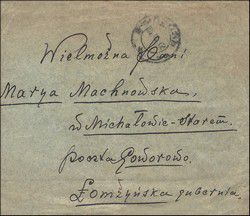 Wielmożna Pani
Marya Machnowska,
w Michałowie-Starem
poczta Goworowo
Łomżyńska gubernia